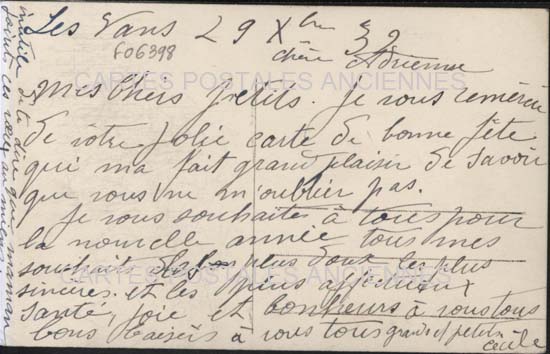 Les Vans 29 Xbre 32
F06398
chère Adrienne
CARTES POSTALES ANCIENNES
Mes chers petits. Je vous remercie
de votre jolie carte de bonne fête
qui ma fait grand plaisir de savoir
que vous ne m'oublier pas.
Je vous souhaites à tous pour
la nouvelle année tous mes
souhaits les plus doux les plus
CARTES POSTALES ANCIENNES
sincères et les plus affectueux
santé, joie et bonheurs à vous tous
bons baisers à vous tous grands et petits
Cécile
inutile de te dire que maman
joint ces vœux au miens